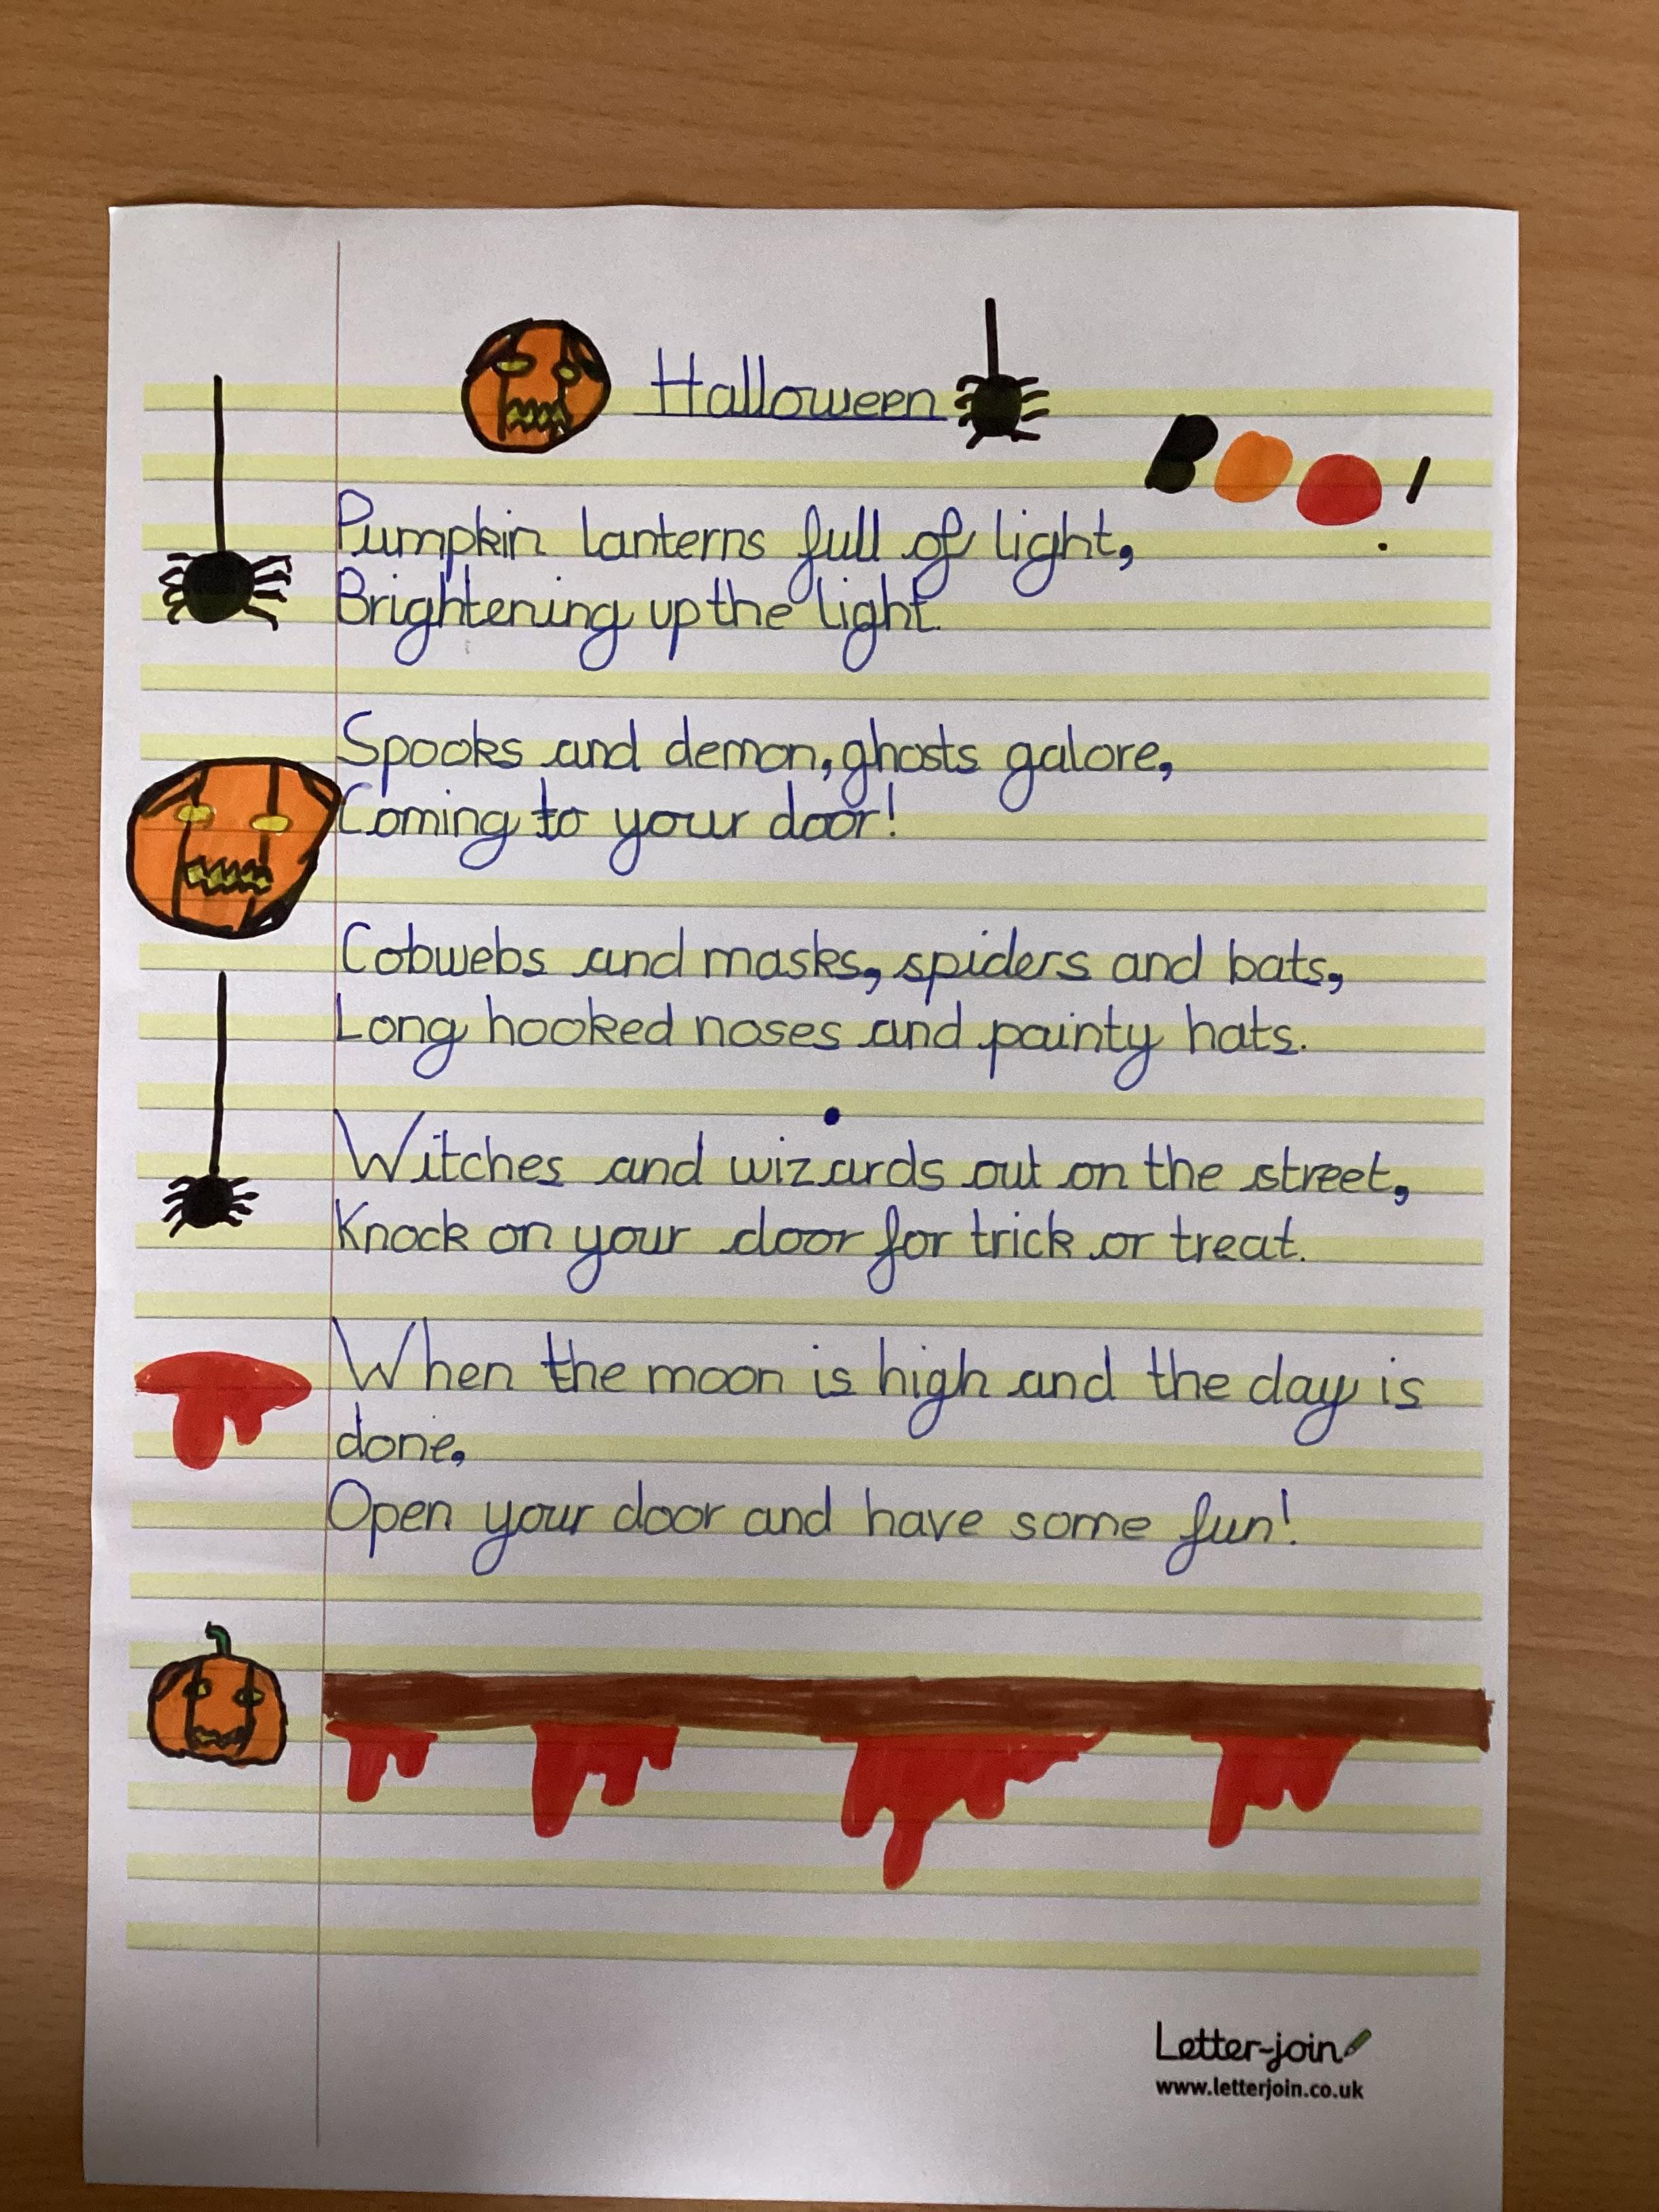 Halloween
BOO!
Pumpkin lanterns full of light,
Brightening up the light.
Spooks and demon, ghosts galore,
Coming to your door!
Cobwebs and masks, spiders and bats,
Long hooked noses and painty hats.
Witches and wizards out on the street,
Knock on your door for trick or treat.
When the moon is high and the day is
done,
Open your door and have some fun!
Letter-join
www.letterjoin.co.uk